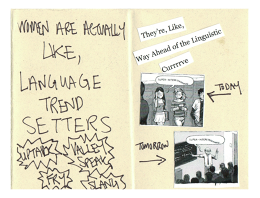 WOMEN ARE ACTUALLY
LIKE,
LANGUAGE
TREND
SETTERS
UPTALK
VALLEY
SPEAK
FRY
SLANG
They're, Like,
Way Ahead of the Linguistic
Currrrve
TODAY
TOMORROW